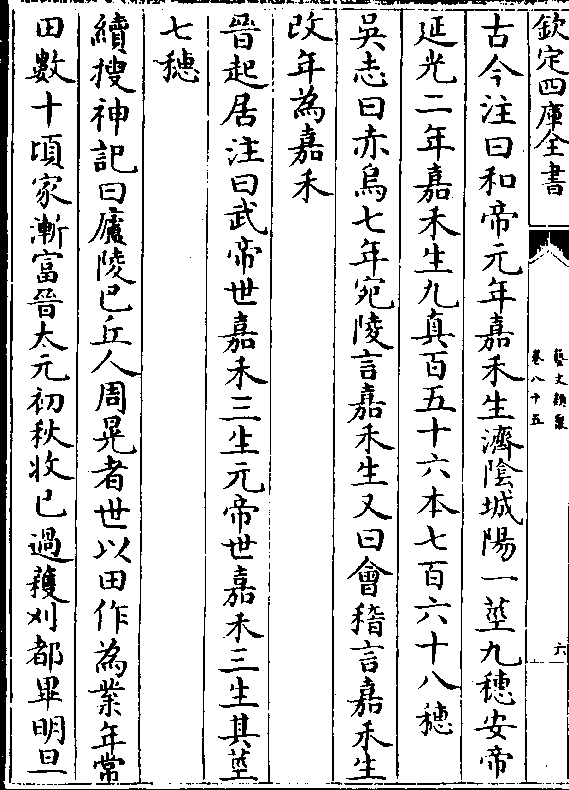 欽定四庫全書
藝文類聚
卷八十五
六
古今注曰和帝元年嘉禾生濟陰城陽一莖九穗安帝
延光二年嘉禾生九真百五十六本七百六十八穗
吳志曰赤烏七年宛陵言嘉禾生又曰會稽言嘉禾生
改年為嘉禾
晉起居注曰武帝世嘉禾三生元帝世嘉禾三生其莖
七穗
續搜神記曰廬陵巴丘人周晃者世以田作為業年常
田數十頃家漸富晉太元初秋收已過穫刈都畢明旦